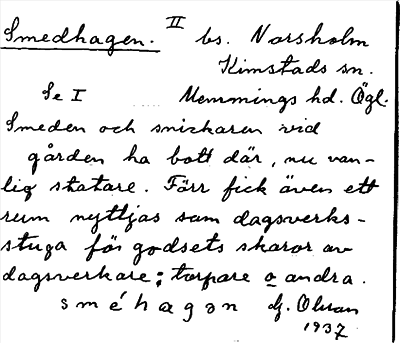 Smedhagen. II bs. Norsholm
Kimstads sn.
Se I Memmings hd. Ögl.
Smeden och snickaren vid
gården ha bott där, nu van-
lig statare. Förr fick även ett
rum nyttjas som dagsverks-
stuga för godsets skaror av
dagsverkare; torpare o andra.
sméhagən dj. Olson
1937